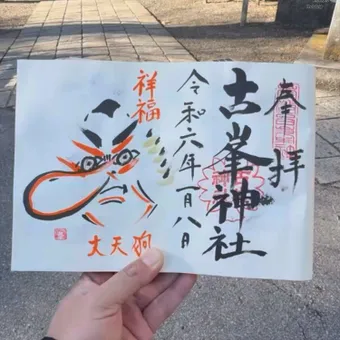 奉拝
古峯神社
令和六年一月八日
祥福
大天狗